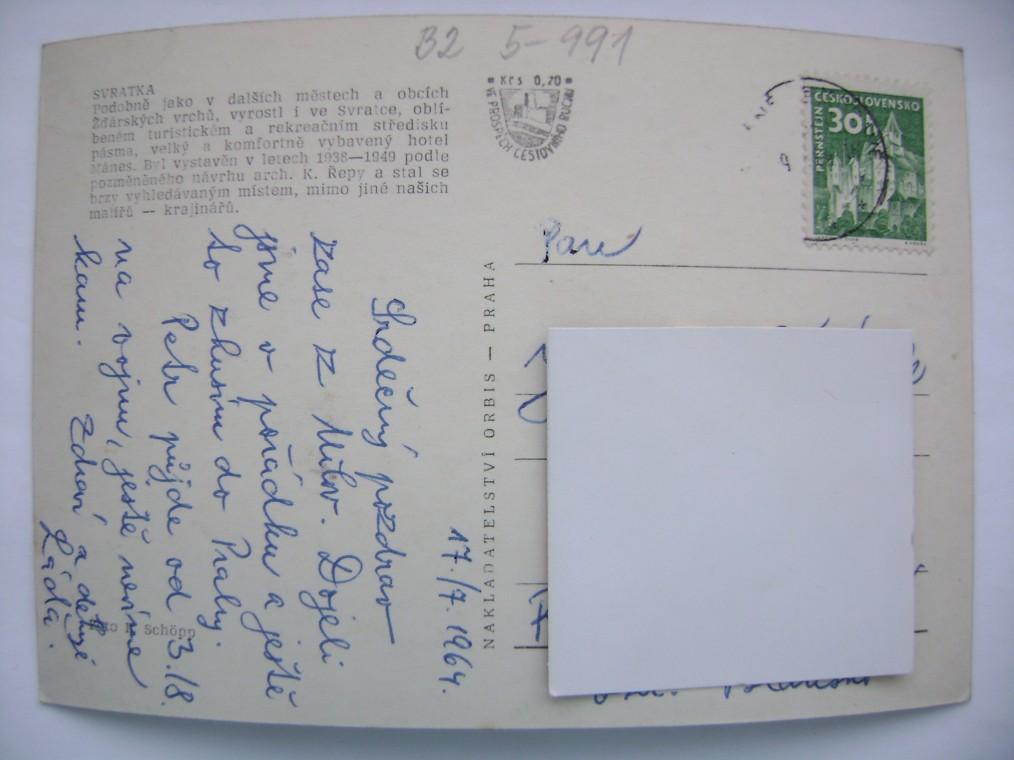 B2 5-991
SVRATKA
Podobně jako v dalších městech a obcích
Žďárských vrchů, vyrostl i ve Svratce, oblí-
beném turistickém a rekreačním středisku
pásma, velký a komfortně vybavený hotel
Mánes. Byl vystavěn v letech 1938—1949 podle
pozměněného návrhu arch. K. Řepy a stal se
brzy vyhledávaným místem, mimo jiné našich
malířů — krajinářů.
Kčs 0,70
VE PROSPĚCH CESTOVNÍHO RUCHU
ČESKOSLOVENSKO
PERNŠTEJN
30h
17./7. 1964.
Srdečný pozdrav
zase z Milov. Dojeli
jsme v pořádku a ještě
to zkusím do Prahy.
Petr půjde od 3./8.
na vojnu, ještě nevíme
kam. Zdraví a
Láďa.
Schöpp
NAKLADATELSTVÍ ORBIS — PRAHA